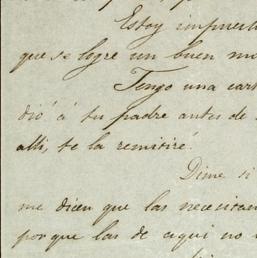 Estoy
que se logre un buen
Tengo una
dió á tu padre antes de
alli, te la remitiré.
Dime si
me dicen que las necesitan
porque las de aqui no